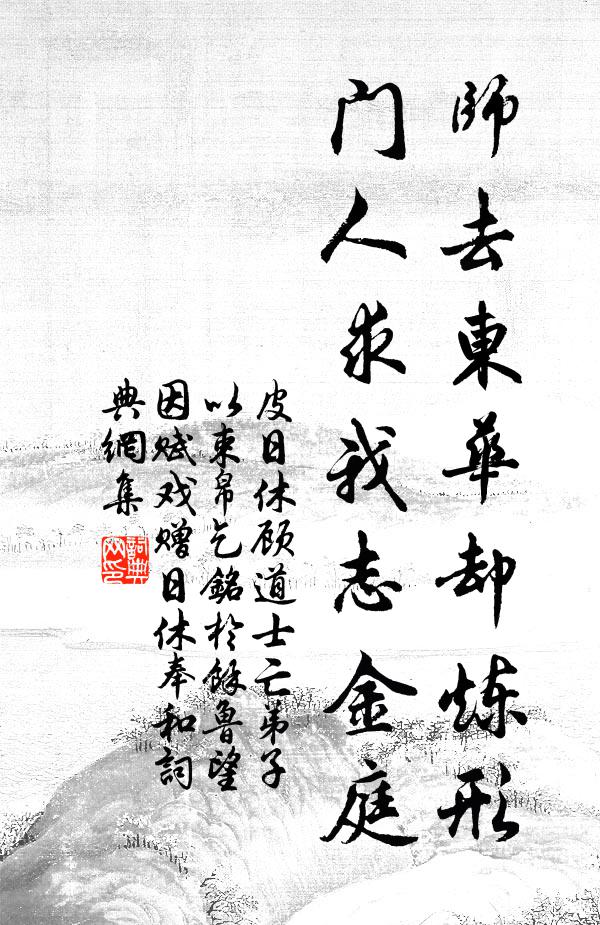 師去東華却炼形
門人求我志金庭
皮日休顾道士亡弟子
以束帛乞銘於餘魯望
因赋戏赠日休奉和詞
典網集
詞典
网印